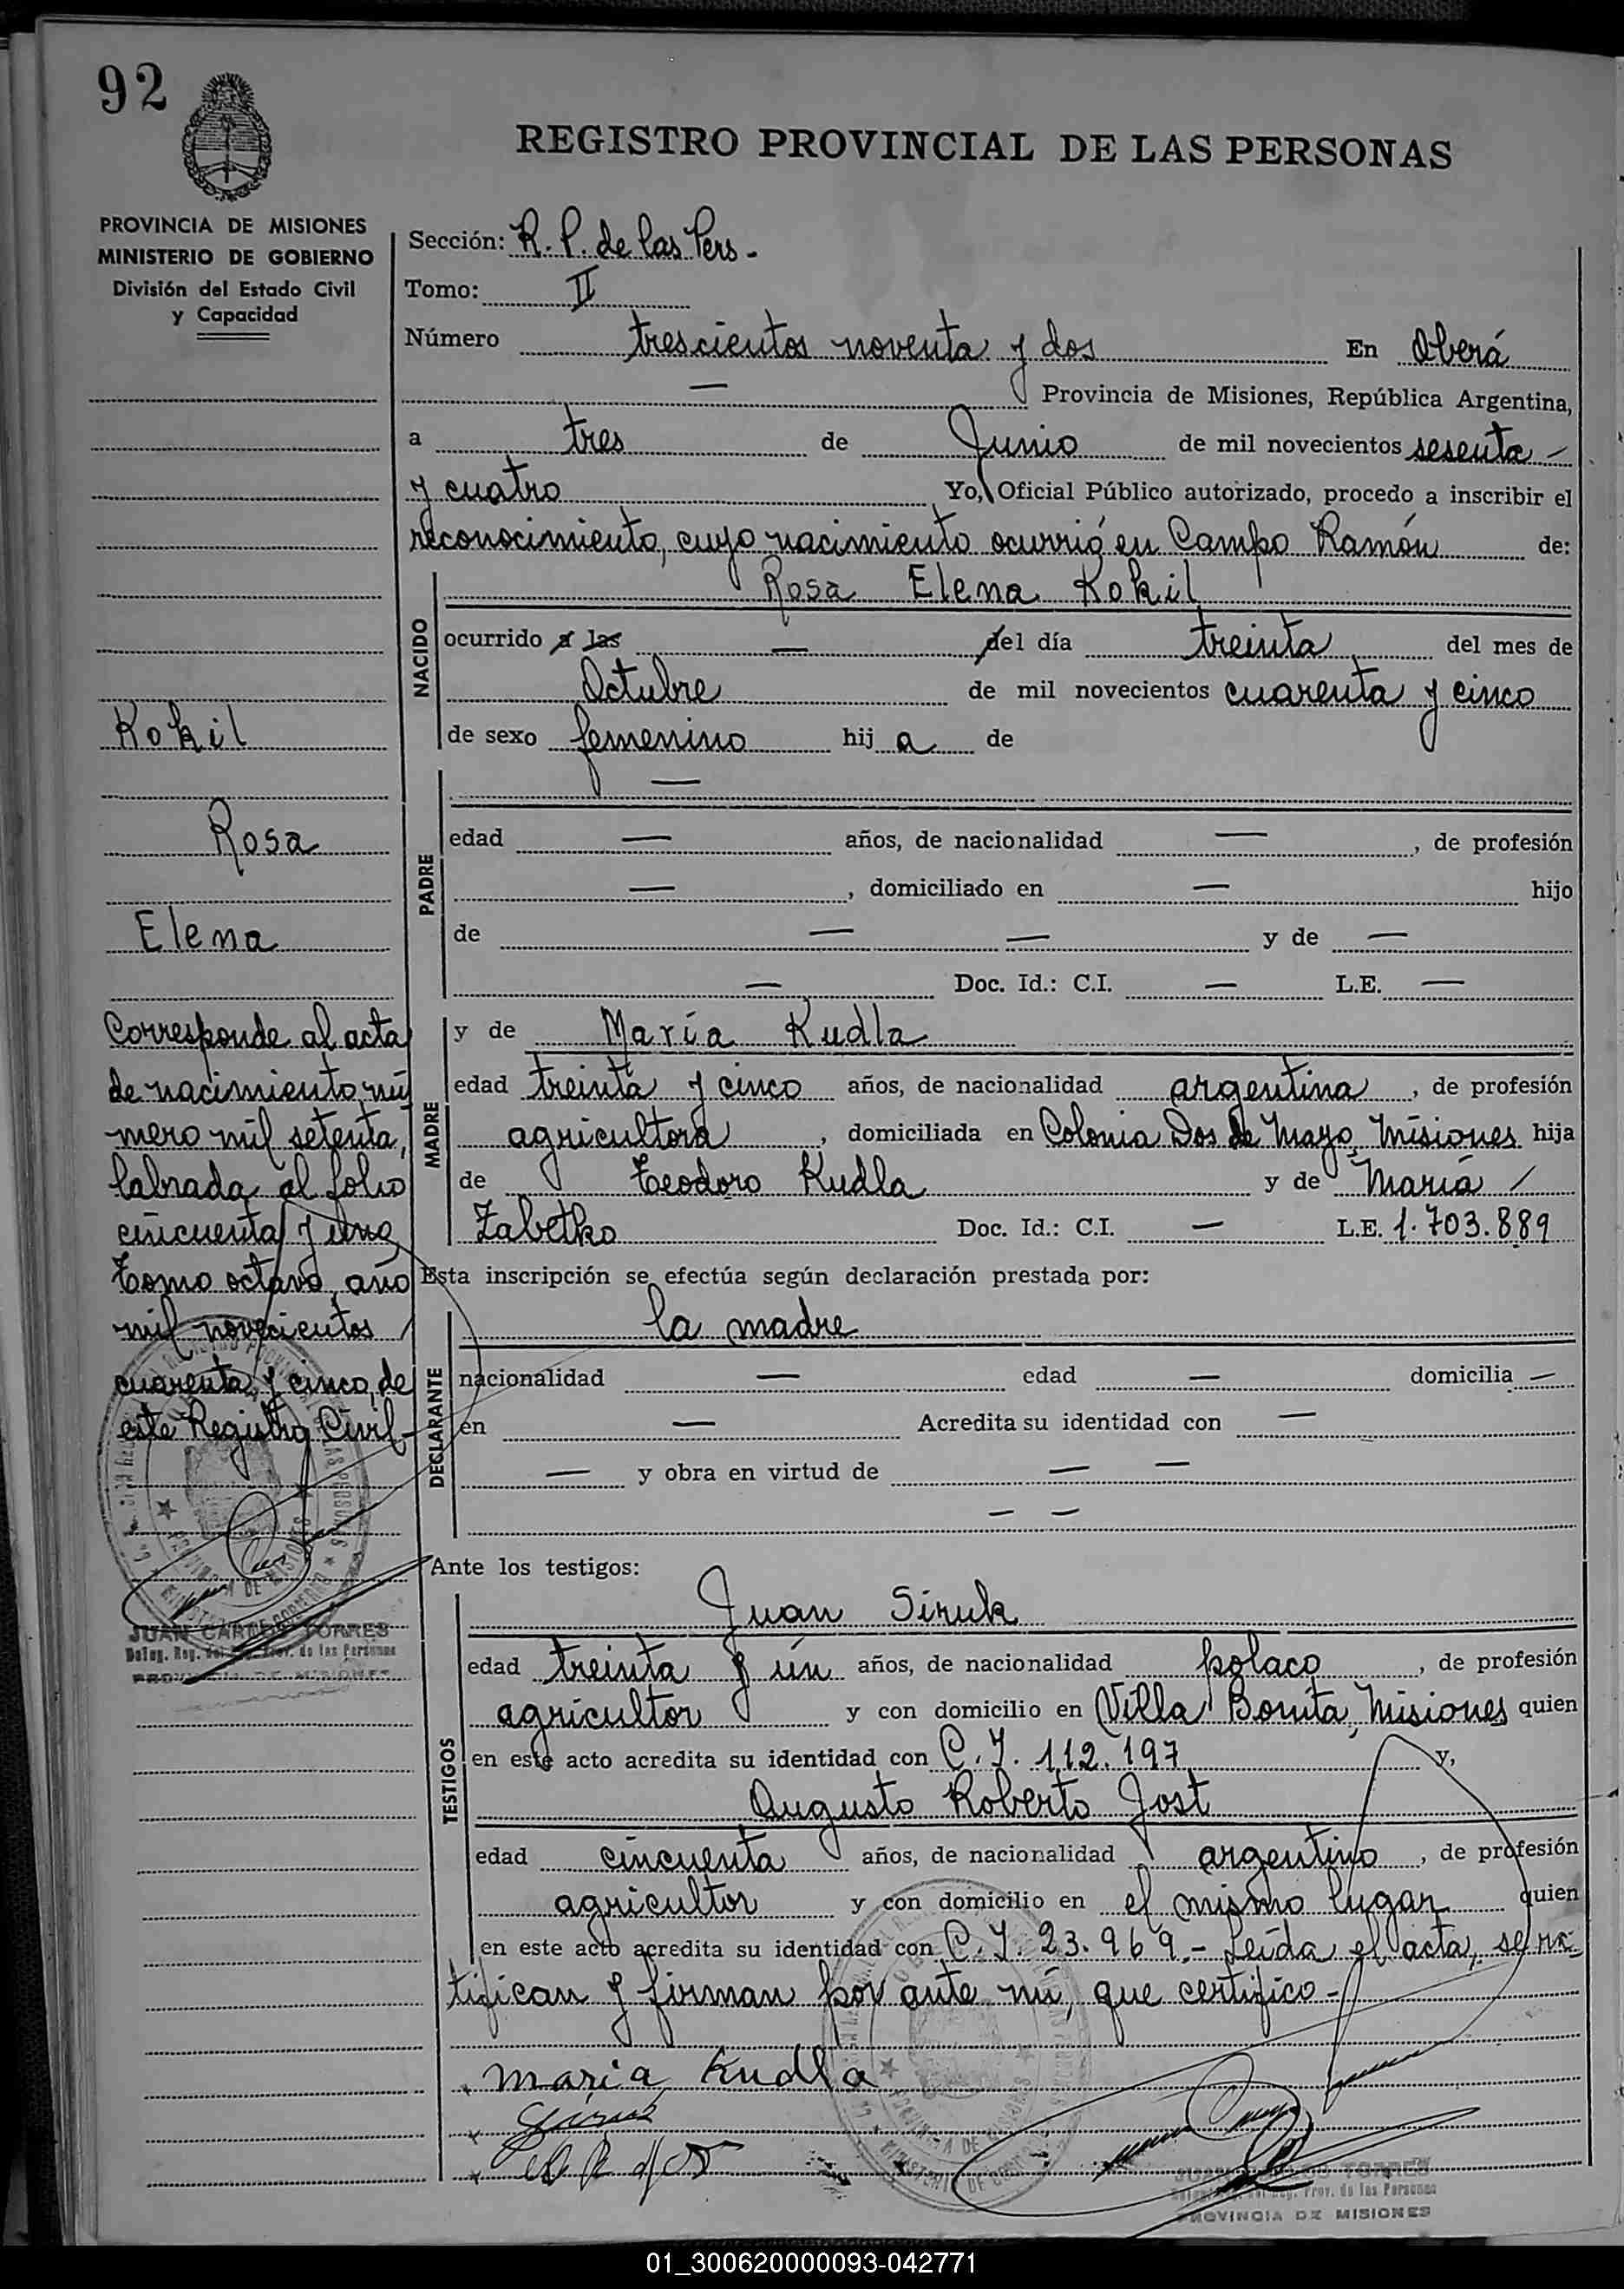 92
REGISTRO PROVINCIAL DE LAS PERSONAS
PROVINCIA DE MISIONES
MINISTERIO DE GOBIERNO
División del Estado Civil
y Capacidad
Sección: R. P. de las Pers.
Tomo: II
Número trescientos noventa y dos En Oberá
— Provincia de Misiones, República Argentina,
a tres de Junio de mil novecientos sesenta
y cuatro Yo, Oficial Público autorizado, procedo a inscribir el
reconocimiento, cuyo nacimiento ocurrió en Campo Ramón de:
NACIDO
Rosa Elena Kokil
ocurrido a las — del día treinta del mes de
Octubre de mil novecientos cuarenta y cinco
de sexo femenino hija de
PADRE
—
edad — años, de nacionalidad —, de profesión
—, domiciliado en — hijo
de — — y de —
— Doc. Id.: C.I. — L.E. —
MADRE
y de María Kudla
edad treinta y cinco años, de nacionalidad argentina, de profesión
agricultora, domiciliada en Colonia Dos de Mayo, Misiones hija
de Teodoro Kudla y de María
Zabetko Doc. Id.: C.I. — L.E. 1.703.889
Esta inscripción se efectúa según declaración prestada por:
DECLARANTE
la madre
nacionalidad — edad — domicilia —
en — Acredita su identidad con —
— y obra en virtud de — —
— —
Ante los testigos:
TESTIGOS
Juan Siruk
edad treinta y ún años, de nacionalidad polaco, de profesión
agricultor y con domicilio en Villa Bonita, Misiones quien
en este acto acredita su identidad con C.I. 112.197 y,
Augusto Roberto Jost
edad cincuenta años, de nacionalidad argentino, de profesión
agricultor y con domicilio en el mismo lugar quien
en este acto acredita su identidad con C.I. 23.969.- Leída el acta, se ra-
tifican y firman por ante mí, que certifico.-
maria Kudla
JUAN CARLOS TORRES
Deleg. Reg. del Reg. Prov. de las Personas
PROVINCIA DE MISIONES
Kokil
Rosa
Elena
Corresponde al acta
de nacimiento nú
mero mil setenta,
labrada al folio
cincuenta y uno
Tomo octavo, año
mil novecientos
cuarenta y cinco, de
este Registro Civil-
JUAN CARLOS TORRES
Deleg. Reg. del Reg. Prov. de las Personas
PROVINCIA DE MISIONES
01_300620000093-042771